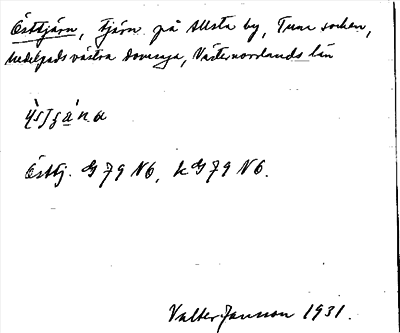 Östtjärn, tjärn på Allsta by, Tuna socken,
Medelpads västra domsaga, Västernorrlands län
Östtj. G 79 V6, k G 79 V6.
Valter Jansson 1931.